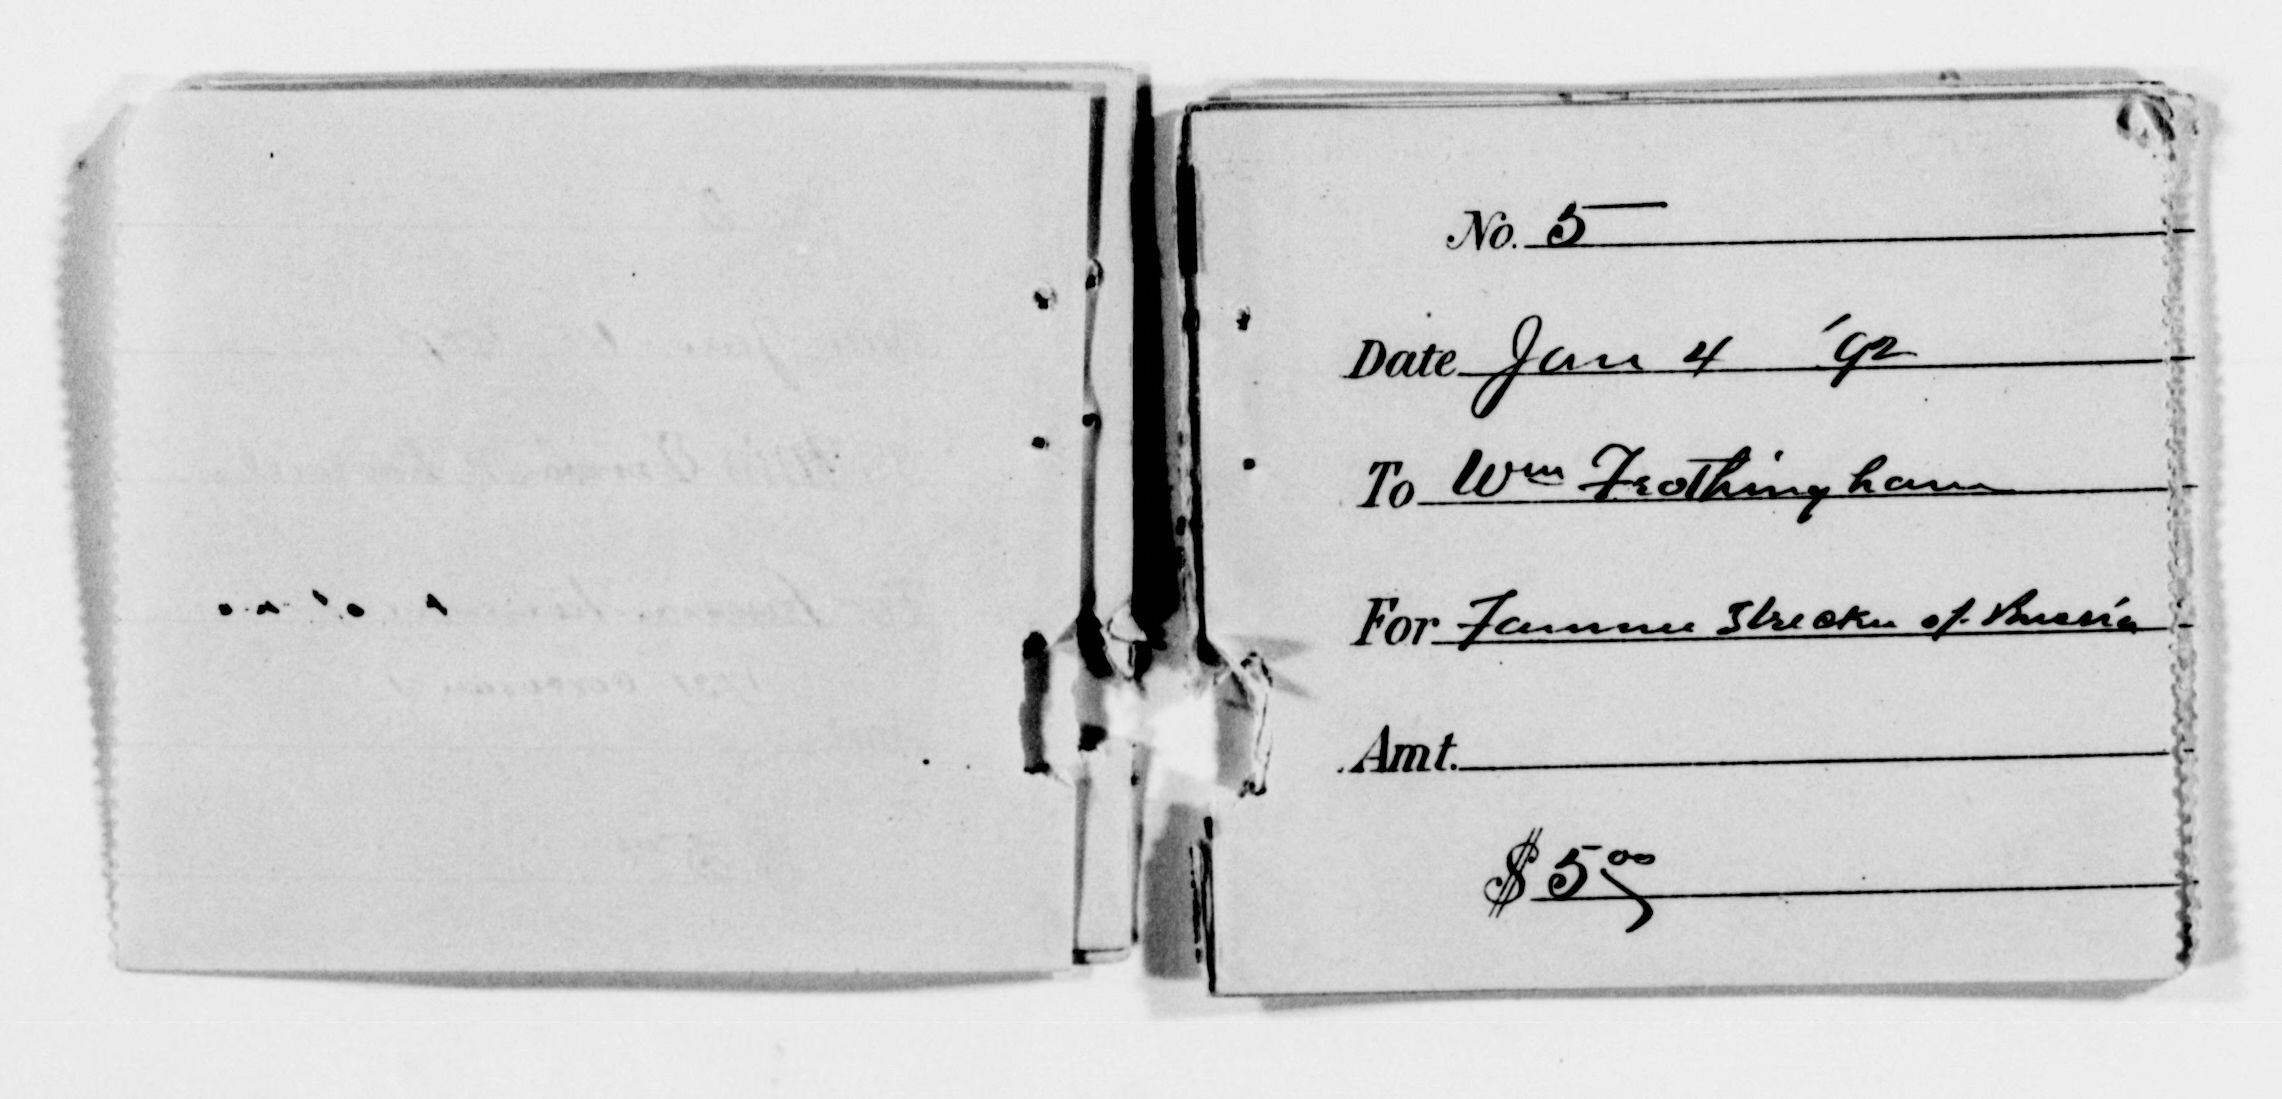 No. 5
Date Jan 4 '92
To Wm Frothingham
For Famine Stricken of Russia
Amt.
$ 5 00